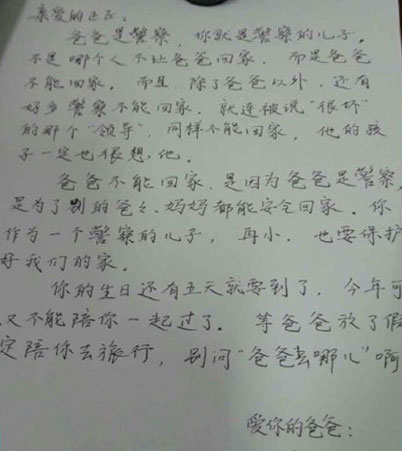 亲爱的正正:
爸爸是警察,你就是警察的儿子。
不是哪个人不让爸爸回家,而是爸爸
不能回家。而且,除了爸爸以外,还有
好多警察不能回家,就连被说“很坏”
的那个“领导”,同样不能回家,他的孩
子一定也很想他。
爸爸不能回家,是因为爸爸是警察,
是为了别的爸爸、妈妈都能安全回家。你
作为一个警察的儿子,再小,也要保护
好我们的家。
你的生日还有五天就要到了,今年可
又不能陪你一起过了。等爸爸放了假
定陪你去旅行,别问“爸爸去哪儿”啊
爱你的爸爸: